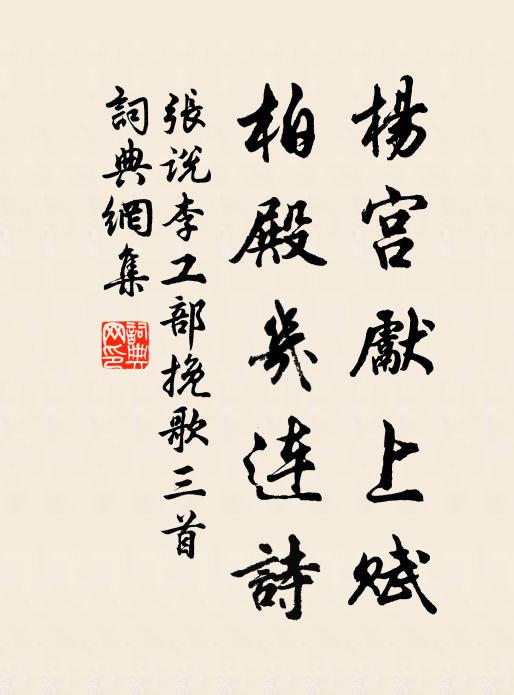 楊宫獻上賦
柏殿幾連詩
張説李工部挽歌三首
詞典網集
詞典網印